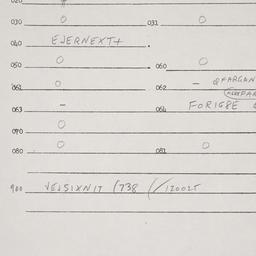 020
030 O 031 O
040 EJERNEXT+ .
050 O . 060 O
061 O 062 - QFARGAN
063 - 064 FORIGRE
070 O
080 O 081 O
900 VEJSIXNIT (738 (/12002T